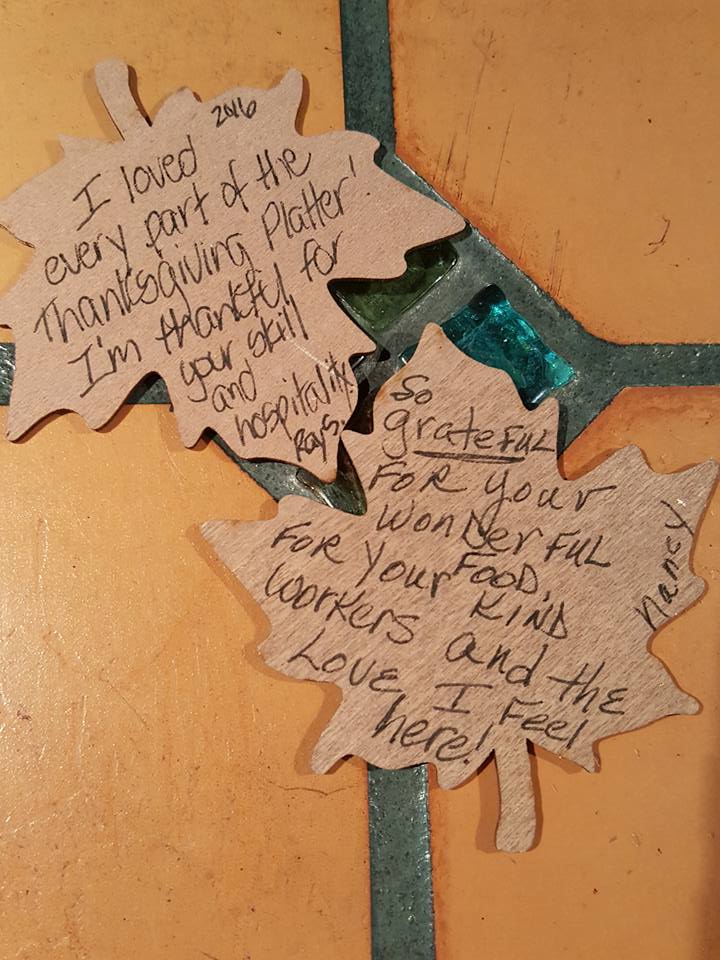 2016
I loved
every part of the
Thanksgiving Platter!
I'm thankful for
your skill
and
hospitality
Rays
So
grateFUL
FOR your
WonDerFUL
FOOD,
FOR Your KIND
Workers and the
Love I Feel
here!
Nancy